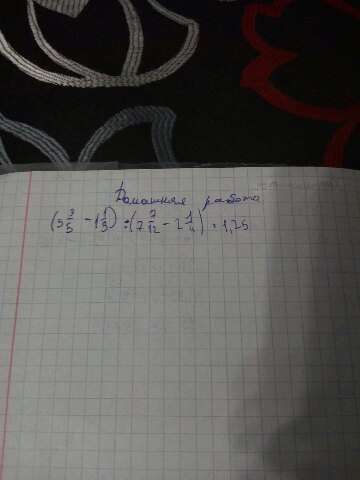 Домашняя работа
(5 3/5 - 1 1/3) : (7 7/12 - 2 1/4) · 1,25